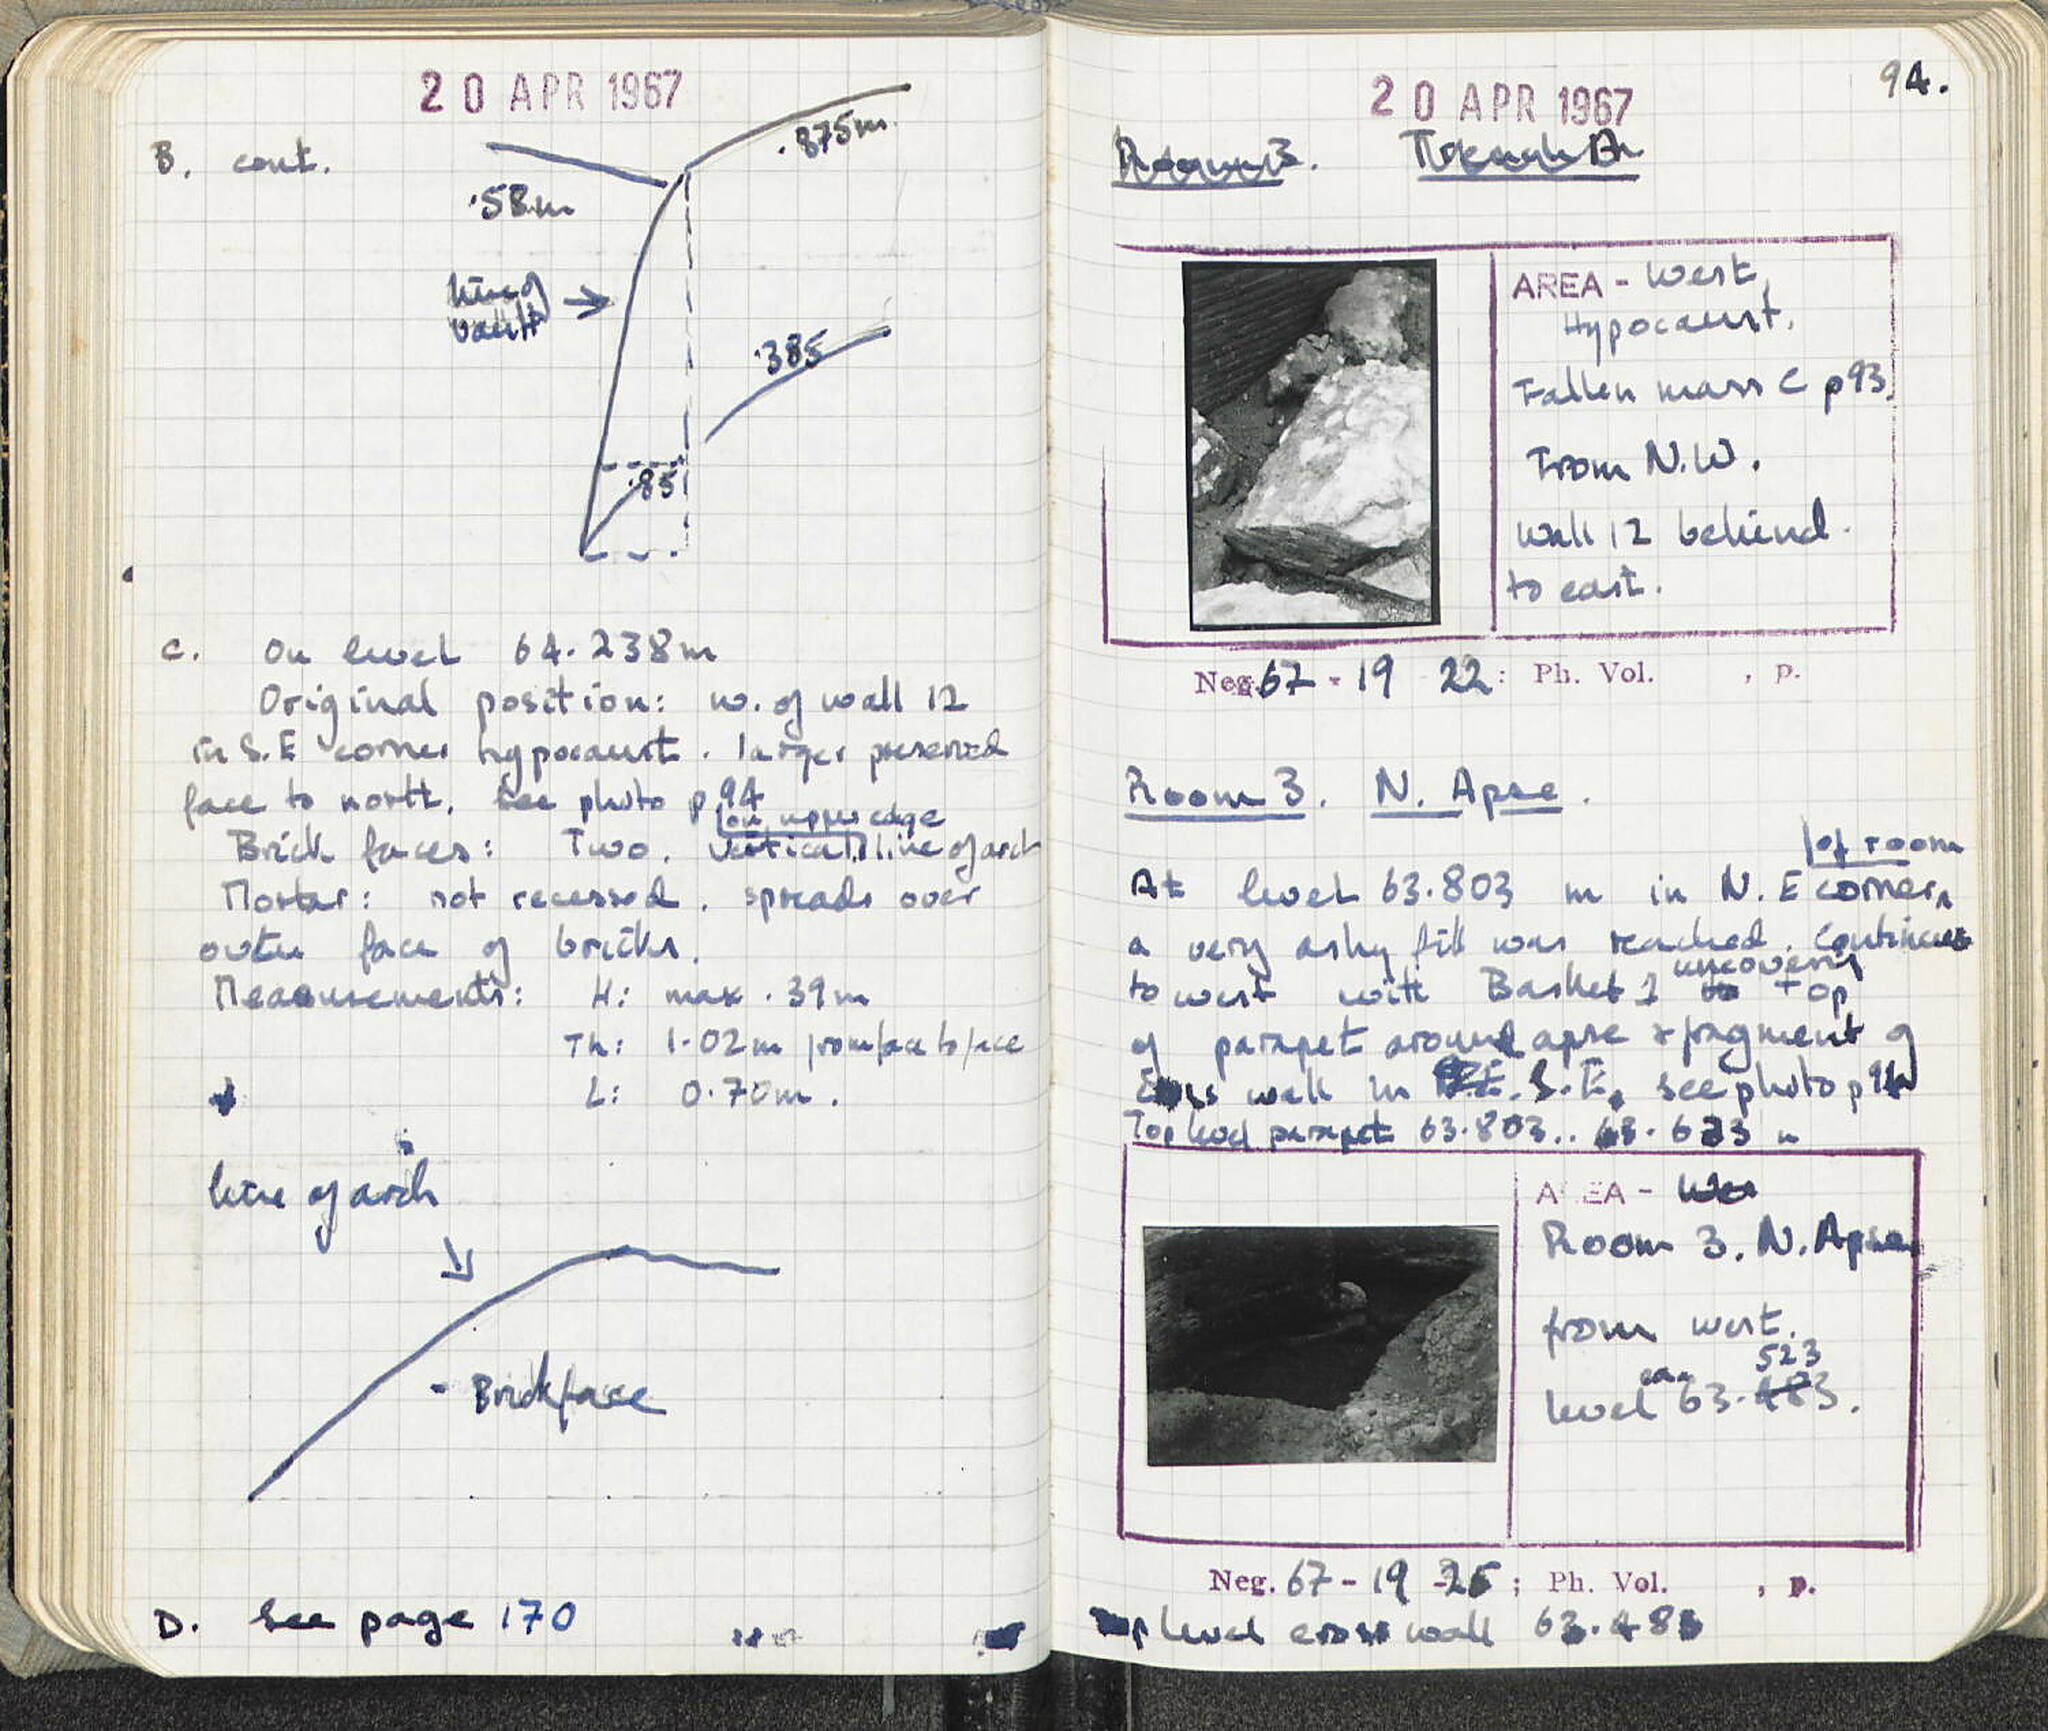 20 APR 1967
B. cont.
.58m
.875m.
line of
vault
.385
.85
C. On level 64.238m
Original position: w. of wall 12
in S.E corner hypocaust. larger preserved
face to north. See photo p.94
on upper edge
Brick faces: Two. vertical, line of arch
Mortar: not recessed. spreads over
outer face of bricks.
Measurements: H: max .39m
Th: 1.02m from face to face
L: 0.70m.
line of arch
- Brick face
D. See page 170
94.
20 APR 1967
Room 3. Trench
AREA - West,
Hypocaust.
Fallen mass C p93.
From N.W.
Wall 12 behind.
to east.
Neg. 67 - 19 22: Ph. Vol. , p.
Room 3. N. Apse.
of room
At level 63.803 m in N. E corner
a very ashy fill was reached. Continues
to west with Basket 1 uncovering top
of parapet around apse & fragment of
wall in S.E. see photo p94
Top level parapet 63.803..
AREA -
Room 3. N. Apse
from west.
523
level ca. 63.483.
Neg. 67 - 19 - 25 ; Ph. Vol. , p.
Top level cross wall 63.483